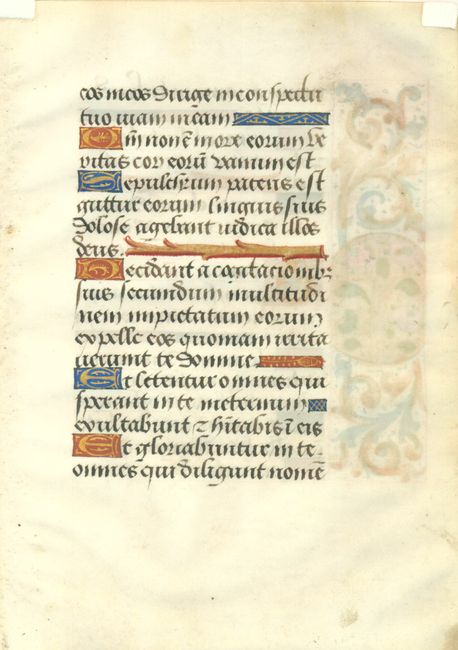 eos meos dirige in conspectu
tuo viam meam
Qm̄ non ē in ore eorum ve
ritas cor eorū vanum est
Sepulchrum patens est
guttur eorum linguis suis
dolose agebant iudica illos
deus.
Decidant a cogitacionibꝰ
suis secundum multitudi
nem impietatum eorum
expelle eos quoniam irrita
verunt te domine
Et letentur omnes qui
sperant in te ineternum
exultabunt ⁊ hitabis ī eis
Et gloriabuntur in te
omnes qui diligunt nomē